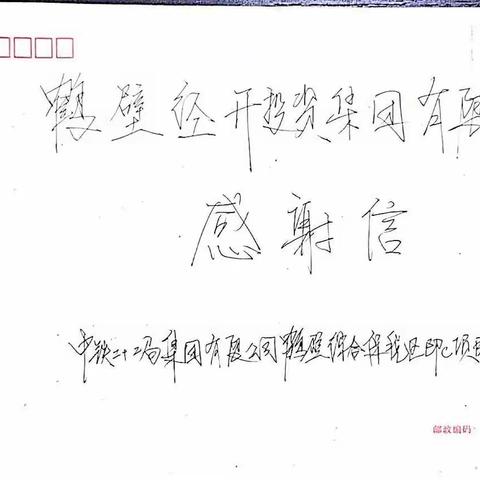 鹤壁经开投资集团有限
感谢信
中铁二十二局集团有限公司鹤壁综合保税区即心项目
邮政编码